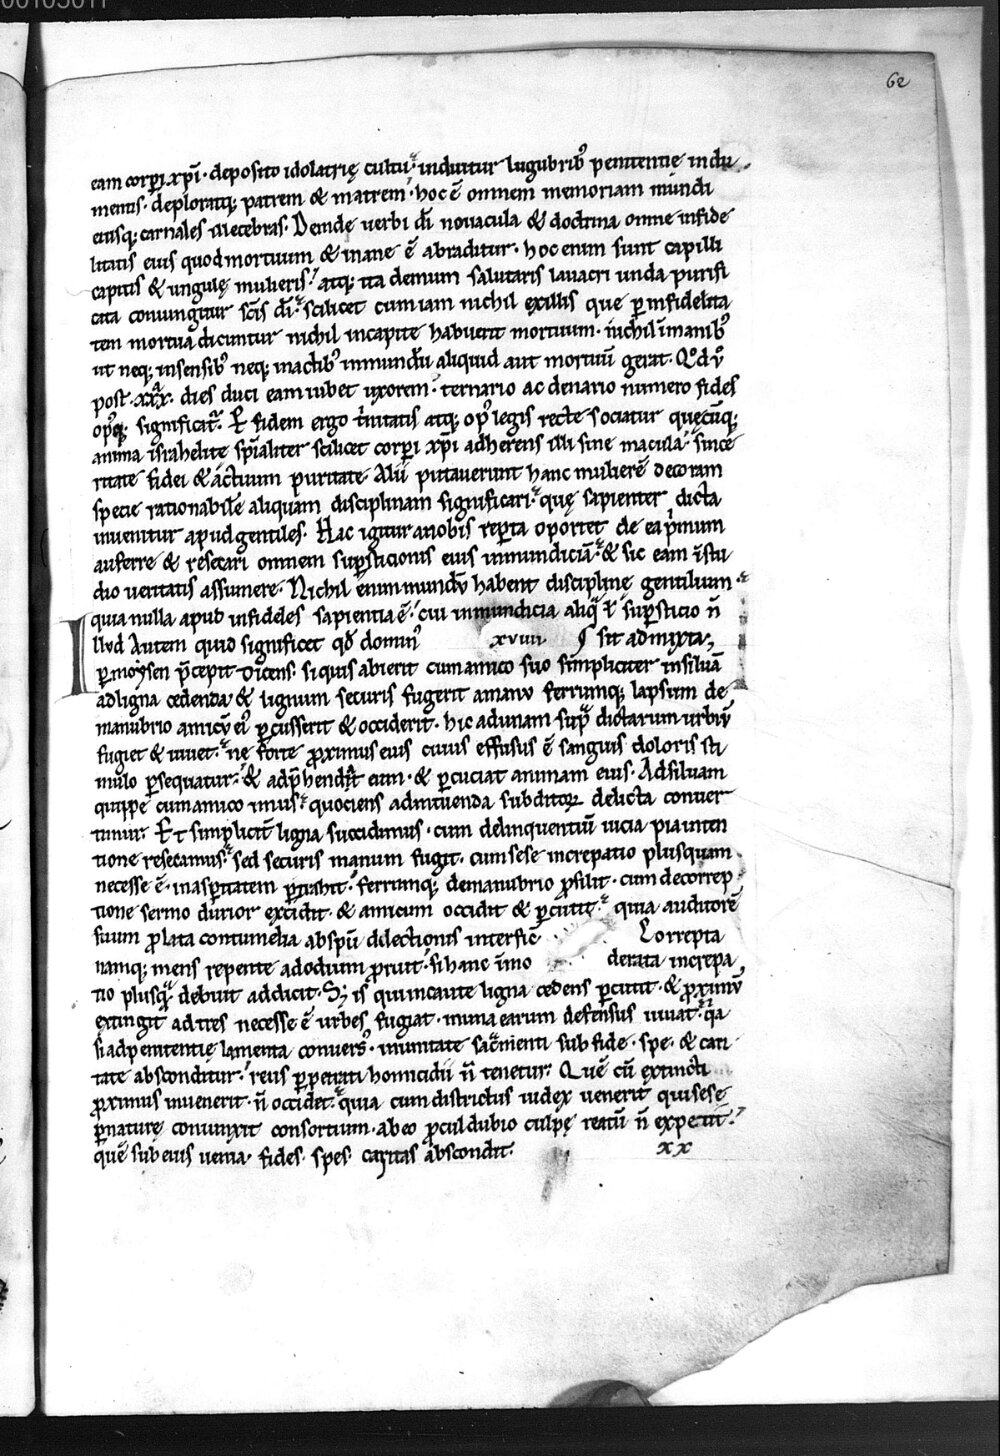 00103011
62
eam corꝑi xp̄i · deposito idolatrię cultu · induitur lugubrib; penitentię indu
mentis · deploratq; patrem & matrem · hoc ē omnem memoriam mundi
eiusq; carnales illecebras · Deinde uerbi dī nouacula & doctrina omne infide
litatis eius quod mortuum & inane ē abraditur · hoc enim sunt capilli
capitis & ungulę mulieris · atq; ita demum salutaris lauacri unda purifi
cata coniungitur sc̄is dī · scilicet cum iam nichil ex illis que ꝑ infidelita
tem mortua dicuntur nichil in capite habuerit mortuum · nichil in manib;
ut neq; in sensib; neq; in actib; inmundū aliquid aut mortuū gerat · Qd v̄
post · xxx · dies duci eam iubet uxorem · ternario ac denario numero fides
opꝰq; significat̄ · Et fidem ergo t̓nitatis atq; opꝰ legis recte sociatur quęcūq;
anima israhelite sp̄ialiter scilicet corꝑi xp̄i adherens illi sine macula · since
ritate fidei & actiuum puritate · Alii putauerunt hanc mulierē decoram
specie rationabilē aliquam disciplinam significari · quę sapienter dicta
inuenitur apud gentiles · Hac igitur a nobis reꝑta oportet de ea p̓mum
auferre & resecari omnem suꝑsticionis eius inmundiciā · & sic eam ī stu
dio ueritatis assumere · Nichil enim mundū habent disciplinę gentilium ·
quia nulla apud infideles sapientia ē · cui inmundicia aliq̄ ł suꝑsticio n̄
Illud Autem quid significet qd̄ dominꝰ xviiii ¶ sit admixta;
ꝑ moysen p̄cepit dicens · si quis abierit cum amico suo simpliciter in siluā
ad ligna cedenda & lignum securis fugerit a manu ferrumq; lapsum de
manubrio amicū eiꝰ ꝑcusserit & occiderit · hic ad unam sup̄ dictarum urbiū
fugiet & uiuet · ne forte ꝓximus eius cuius effusus ē sanguis doloris sti
mulo ꝑsequatur · & adp̄hendat eum · & ꝑcuciat animam eius · Ad siluam
quippe cum amico imus · quociens ad intuenda subditorꝝ delicta conuer
timur · Et simplicit̄ ligna succidimus · cum delinquentiū uicia pia inten
tione resecamus · sed securis manum fugit · cum sese increpatio plus quam
necesse ē · in asꝑitatem ꝑtrahit · ferrumq; de manubrio ꝓsilit · cum de correp
tione sermo durior excidit · & amicum occidit & ꝑcutit · quia auditorē
suum ꝓlata contumelia ab spū dilectionis interficē Correpta
namq; mens repente ad odium ꝓruit · si hanc īmo derata increpa
tio plus q̄ debuit addicit · S; is qui incaute ligna cedens ꝑcutit · & ꝓximū
extingit ad tres necesse ē urbes fugiat · in una earum defensus uiuat · q̄a
si ad penitentię lamenta conuersꝰ · in unitate sac̄menti sub fide · spe · & cari
tate absconditur · reus ꝑpetrati homicidii n̄ tenetur · Quē cū extincti
ꝓximus inuenerit · n̄ occidet · quia cum districtus iudex uenerit qui sese
ꝑ naturę coniunxit consortium · ab eo ꝓcul dubio culpę reatū n̄ expetit ·
quē sub eius uenia · fides · spes · caritas abscondit · xx